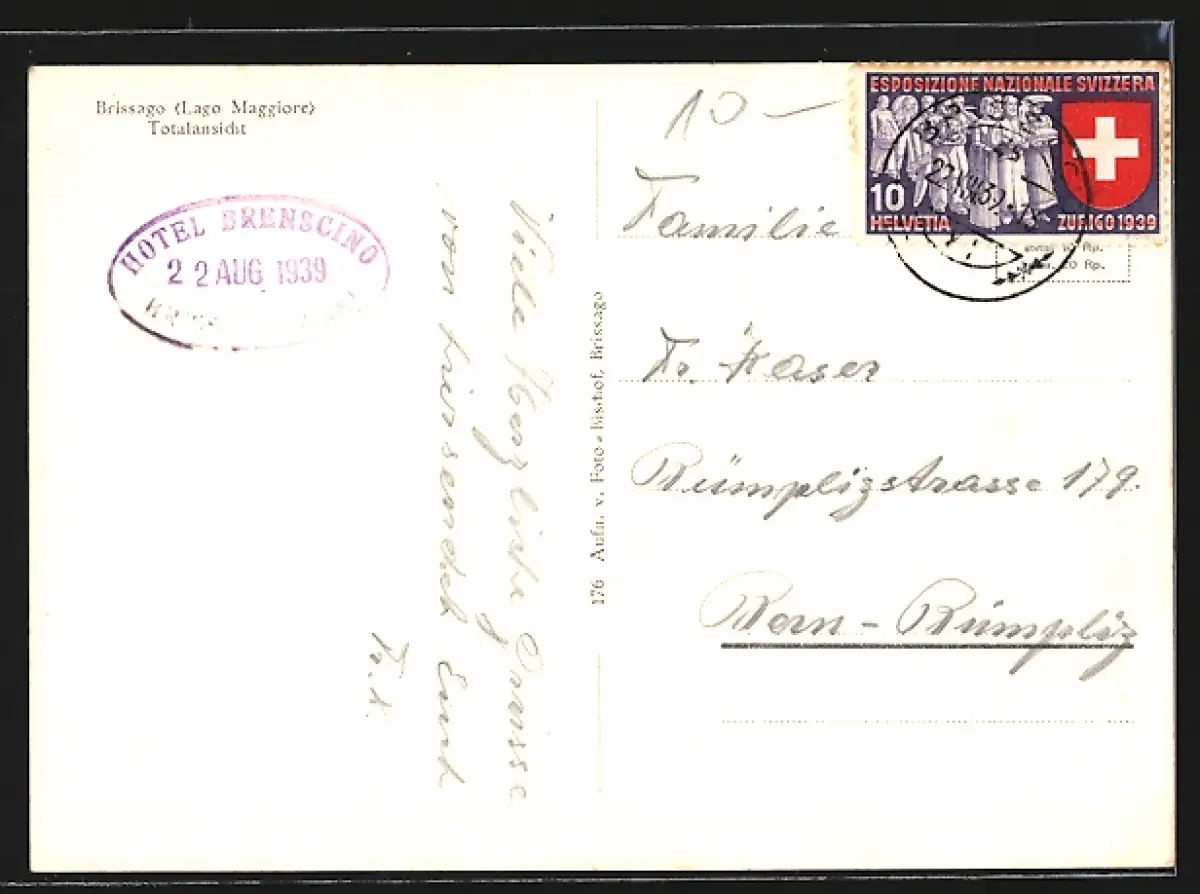 Brissago (Lago Maggiore)
Totalansicht
HOTEL BRENSCINO
22 AUG 1939
Viele Herzliche Grüsse
von hier sendet Euch
Fr. K.
176 Aufn. v. Foto-Bischof, Brissago
10 —
ESPOSIZIONE NAZIONALE SVIZZERA
10
HELVETIA
ZURIGO 1939
Rp.
20 Rp.
Familie
Fr. Käser
Bümplizstrasse 179.
Bern - Bümpliz